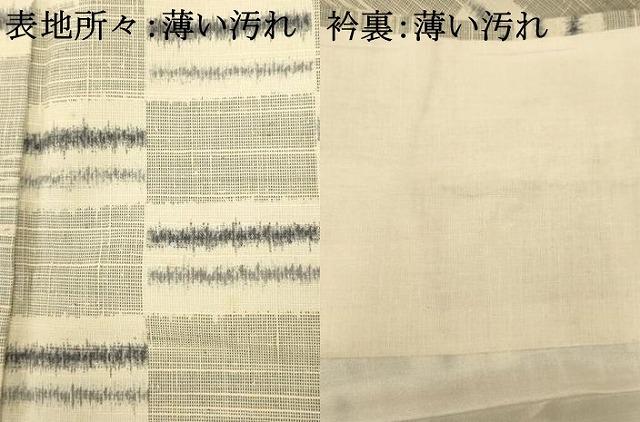 表地所々:薄い汚れ
衿裏:薄い汚れ